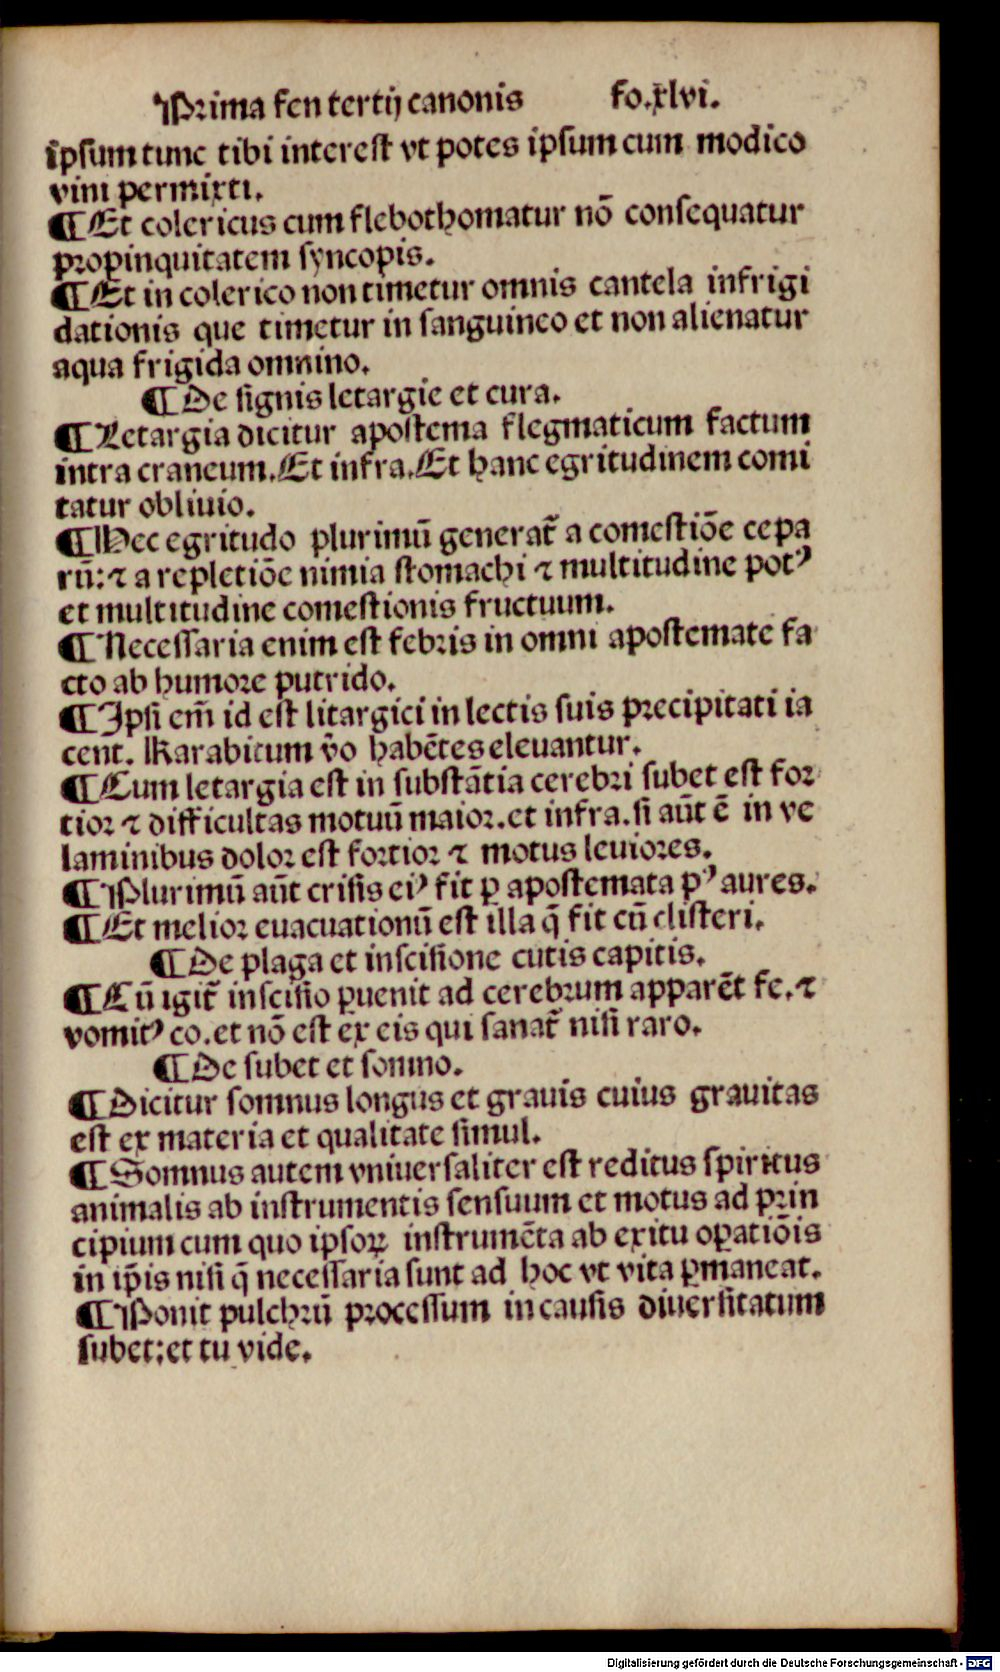 Prima fen tertij canonis fo.xlvi.
ipsum tunc tibi interest vt potes ipsum cum modico
vini permixti.
¶ Et colericus cum flebothomatur nō consequatur
propinquitatem syncopis.
¶ Et in colerico non timetur omnis cantela infrigi
dationis que timetur in sanguineo et non alienatur
aqua frigida omnino.
¶ De signis letargie et cura.
¶ Letargia dicitur apostema flegmaticum factum
intra craneum. Et infra. Et hanc egritudinem comi
tatur obliuio.
¶ Hec egritudo plurimū generat̄ a comestiōe cepa
rū: ⁊ a repletiōe nimia stomachi ⁊ multitudine potꝰ
et multitudine comestionis fructuum.
¶ Necessaria enim est febris in omni apostemate fa
cto ab humore putrido.
¶ Ipsi em̄ id est litargici in lectis suis precipitati ia
cent. Karabitum v̄o habētes eleuantur.
¶ Cum letargia est in substātia cerebri subet est for
tior ⁊ difficultas motuū maior. et infra. si aūt ē in ve
laminibus dolor est fortior ⁊ motus leuiores.
¶ Plurimū aūt crisis eiꝰ fit ꝑ apostemata pꝰ aures.
¶ Et melior euacuationū est illa q̄ fit cū clisteri.
¶ De plaga et inscisione cutis capitis.
¶ Cū igit̄ inscisio ꝑuenit ad cerebrum apparēt fe. ⁊
vomitꝰ co. et nō est ex eis qui sanat̄ nisi raro.
¶ De subet et somno.
¶ Dicitur somnus longus et grauis cuius grauitas
est ex materia et qualitate simul.
¶ Somnus autem vniuersaliter est reditus spiritus
animalis ab instrumentis sensuum et motus ad prin
cipium cum quo ipsoꝝ instrumēta ab exitu oꝑatiōis
in ip̄is nisi q̄ necessaria sunt ad hoc vt vita ꝑmaneat.
¶ Ponit pulchrū processum in causis diuersitatum
subet: et tu vide.
Digitalisierung gefördert durch die Deutsche Forschungsgemeinschaft - DFG